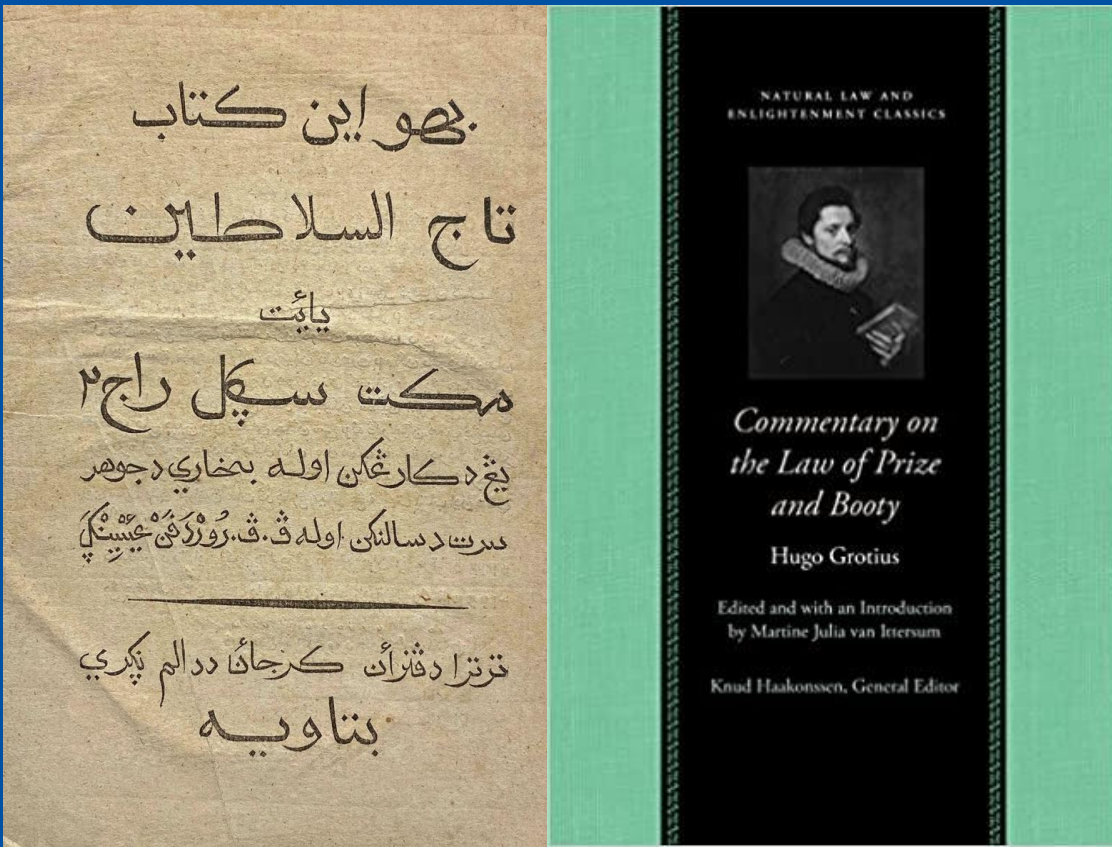 بهو اين كتاب
تاج السلاطين
يائت
مكت سݢل راج٢
يڠ دكارڠكن اوله بخاري دجوهر
سرت دسالنكن اوله ڤ. ڤ. رُوْرْدَ فَنْ
ترترا ددالم نݢري
بتاويه
NATURAL LAW AND
ENLIGHTENMENT CLASSICS
Commentary on
the Law of Prize
and Booty
Hugo Grotius
Edited and with an Introduction
by Martine Julia van Ittersum
Knud Haakonssen, General Editor